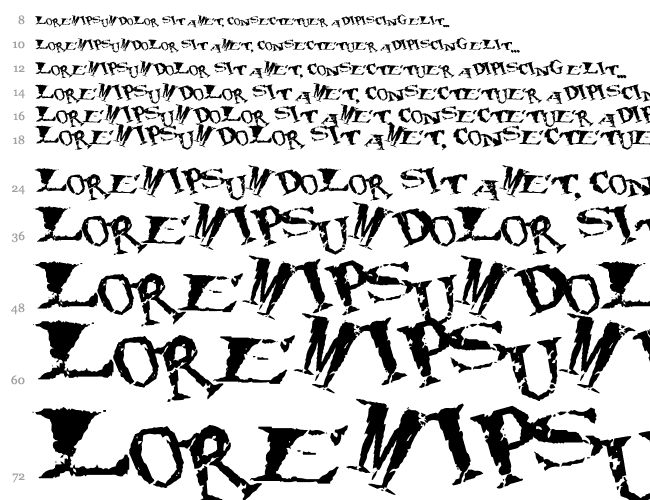 8 LOREMIPSUMDOLOR SIT AMET, CONSECTETUER ADIPISCINGELIT...
10 LOREMIPSUMDOLOR SIT AMET, CONSECTETUER ADIPISCINGELIT...
12 LOREMIPSUMDOLOR SIT AMET, CONSECTETUER ADIPISCINGELIT...
14 LOREMIPSUMDOLOR SIT AMET, CONSECTETUER ADIPISCIN
16 LOREMIPSUMDOLOR SIT AMET, CONSECTETUER ADIP
18 LOREMIPSUMDOLOR SIT AMET, CONSECTETUE
24 LOREMIPSUMDOLOR SIT AMET, CON
36 LOREMIPSUMDOLOR SIT
48 LOREMIPSUMDOL
60 LOREMIPSUM
72 LOREMIPSU